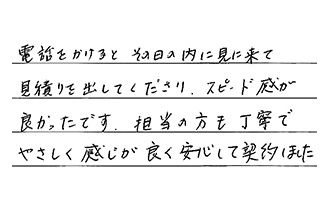 電話をかけると その日の内に見に来て
見積りを出してくださり、スピード感が
良かったです. 担当の方も丁寧で
やさしく感じが良く安心して契約しました